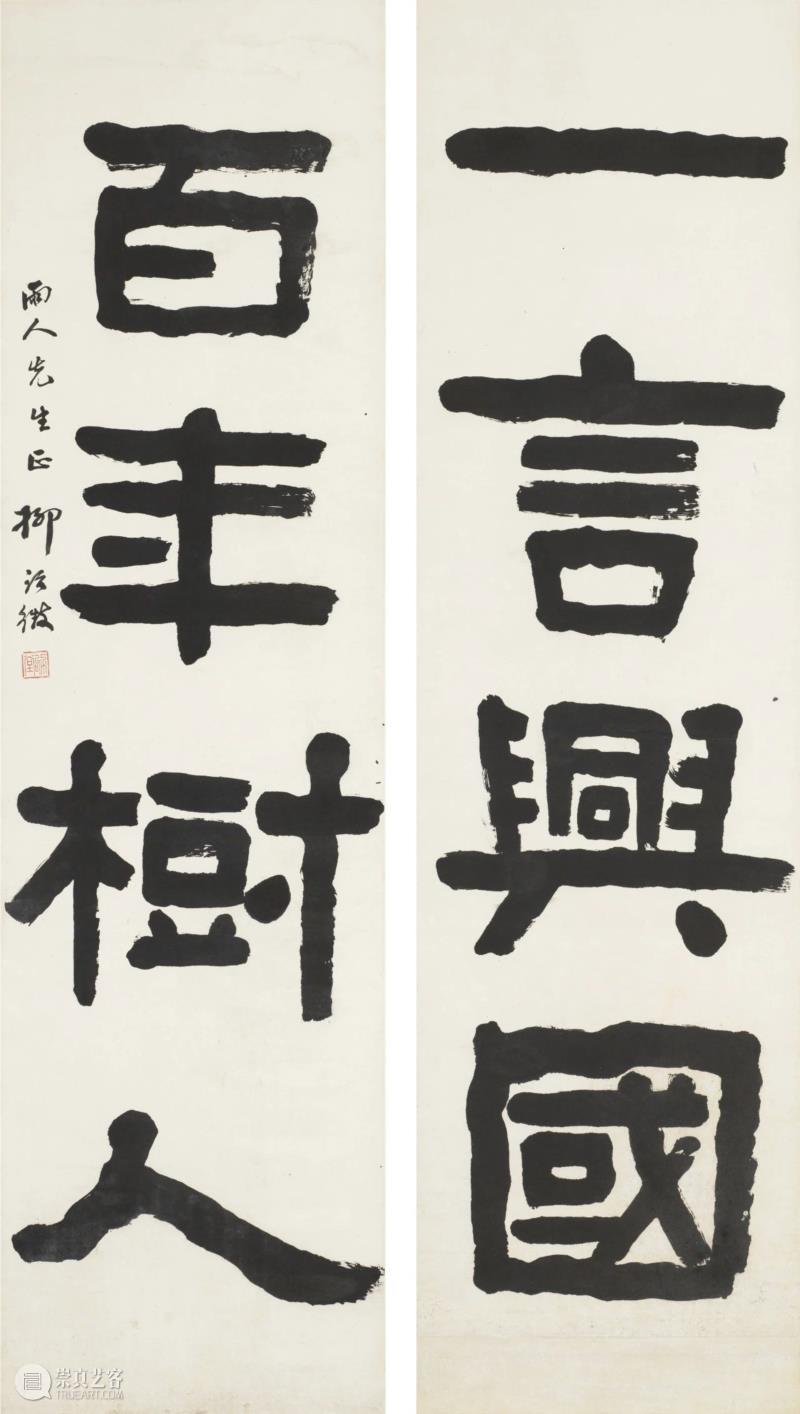 一言興國
百年樹人
雨人先生正 柳詒徵
崇真艺客
TRUEART.COM